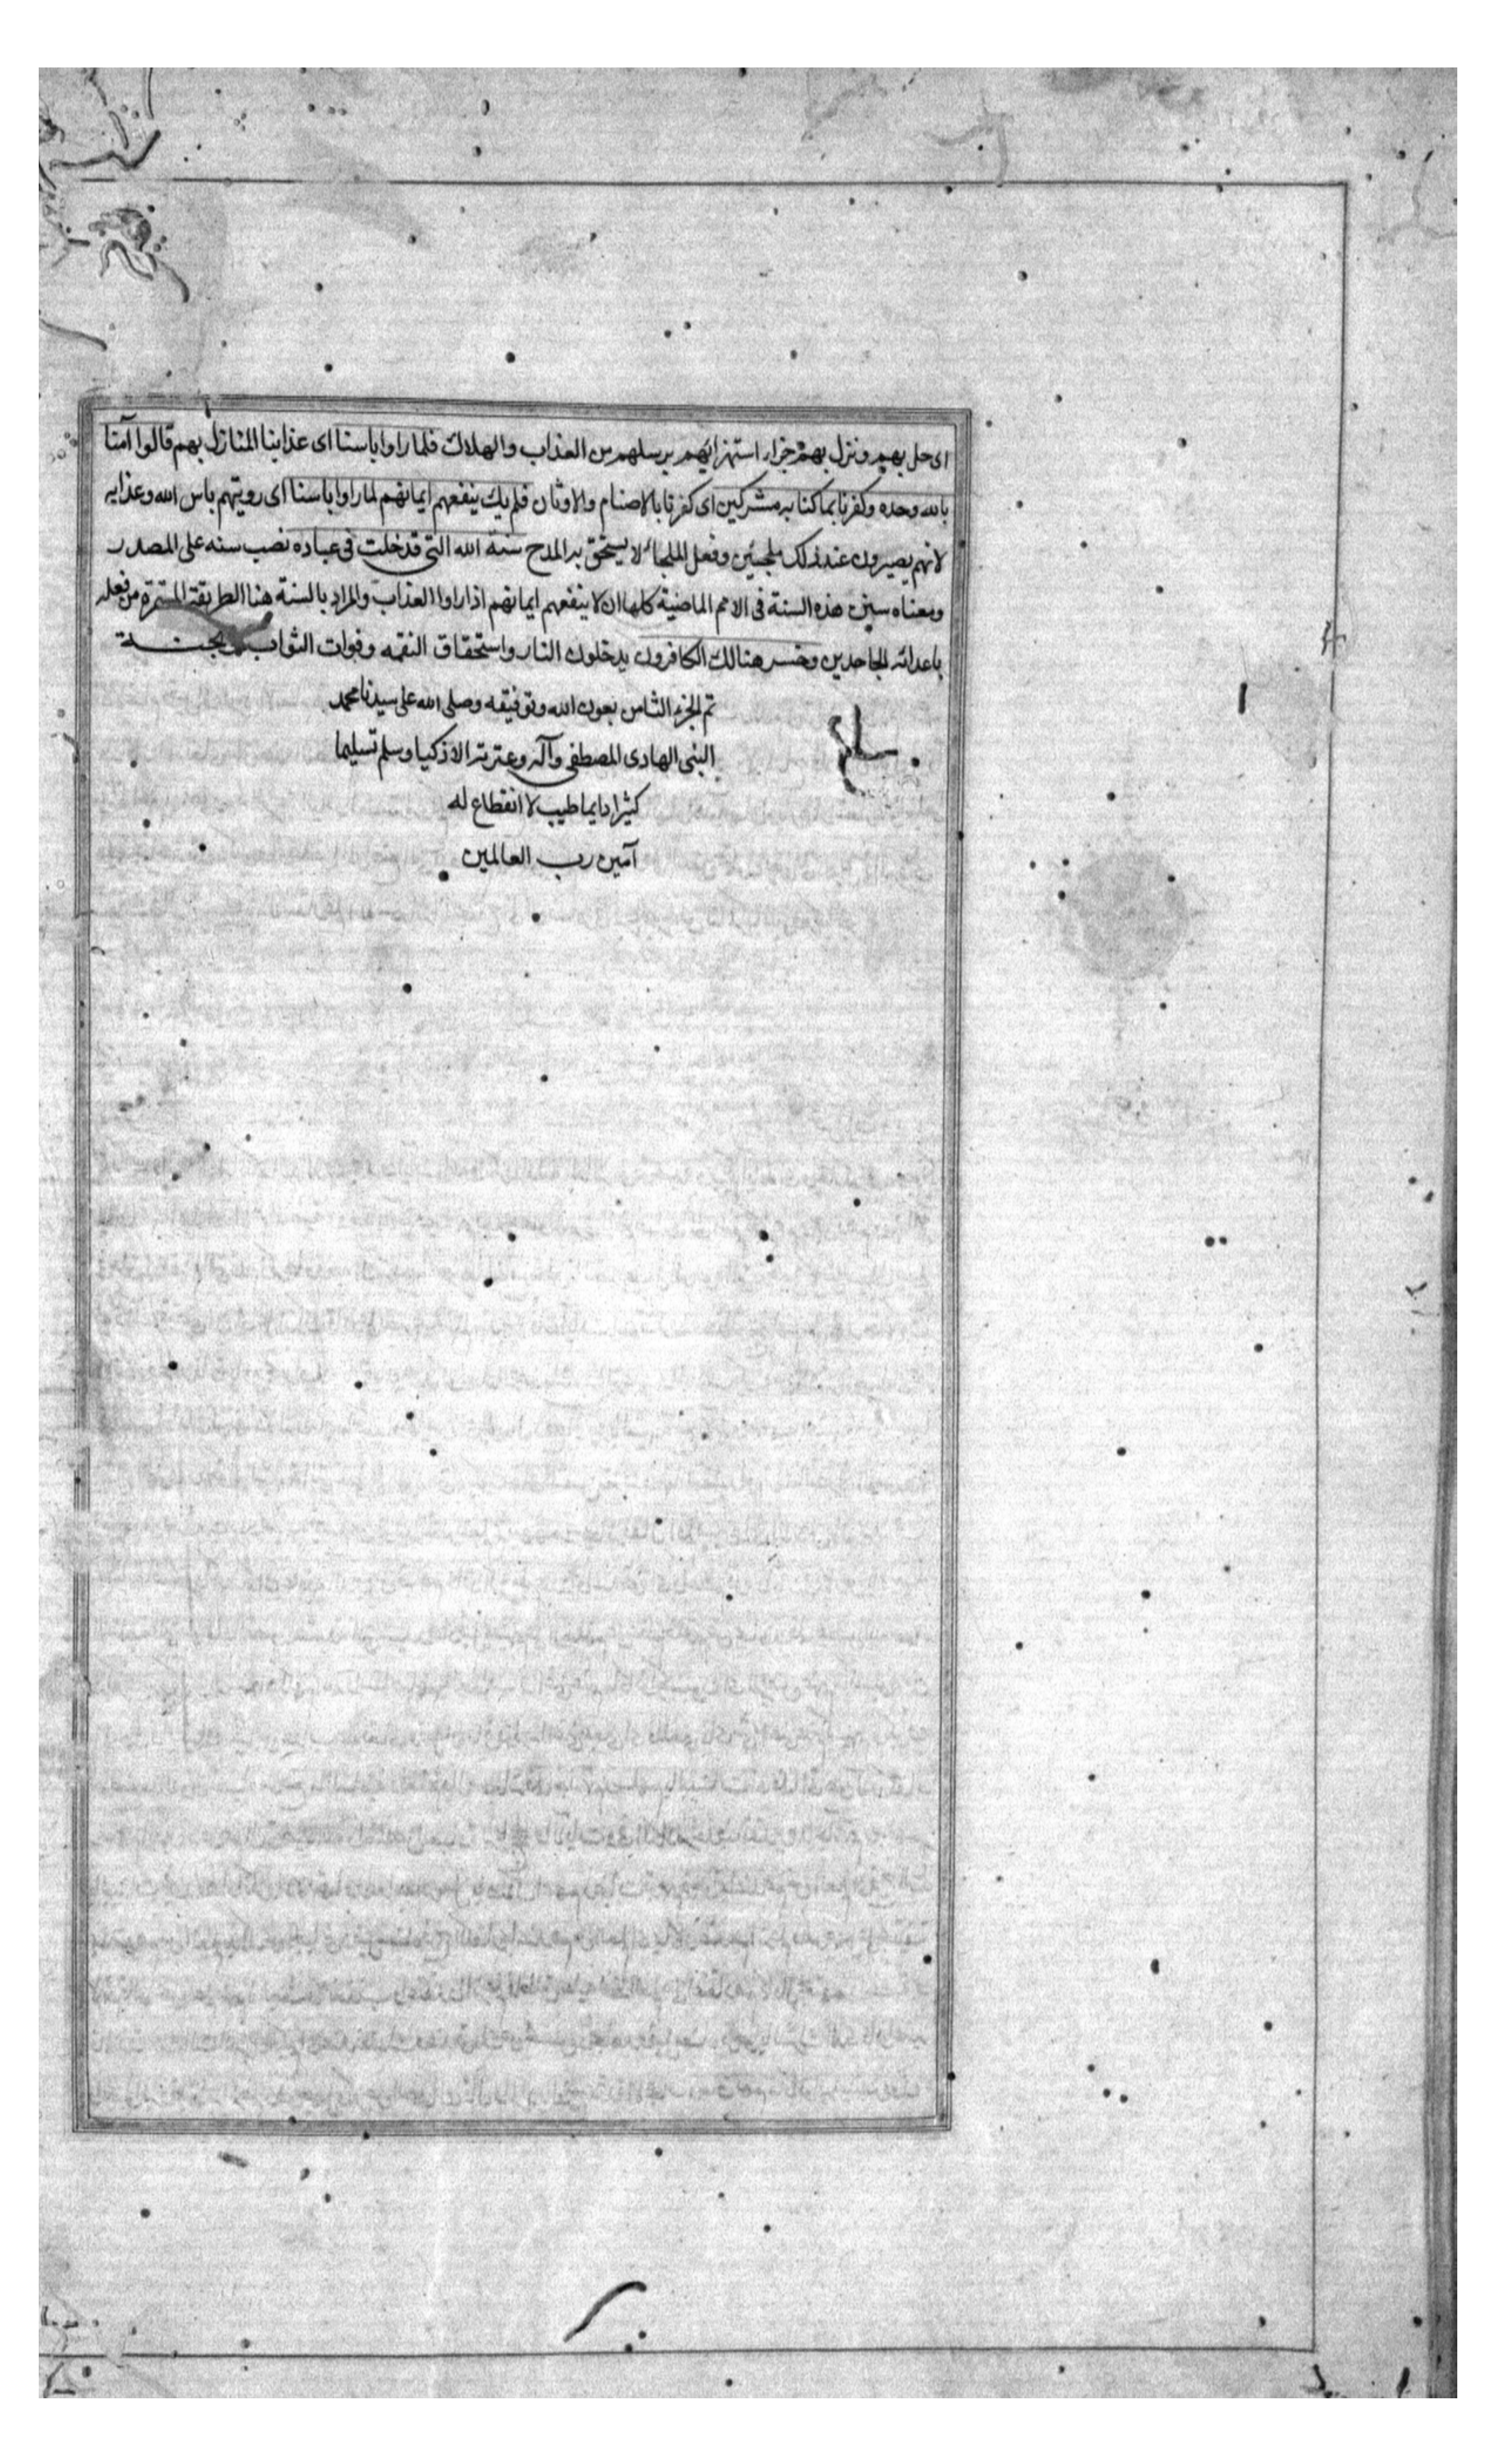 اى حل بهم ونزل بهم جزاء استهزائهم برسلهم من العذاب والهلاك فلما راوا باسنا اى عذابنا المنازل بهم قالوا آمنا
بالله وحده وكفرنا بما كنا به مشركين اى كفرنا بالاصنام والاوثان فلم يك ينفعهم ايمانهم لما راوا باسنا اى رويتهم باس الله وعذابه
لانهم يصيرون عند ذلك ملجئين وفعل الملجاء لا يستحق به المدح سنة الله التى قد خلت فى عباده نصب سنه على المصدر
ومعناه سن هذه السنة فى الامم الماضية كلها ان لا ينفعهم ايمانهم اذا راوا العذاب والمراد بالسنة هنا الطريقة المستمرة من فعله
باعدائه الجاحدين وخسر هنالك الكافرون بدخلون النار واستحقاق النقمه وفوات الثواب والجنة
تم الجزء الثامن بعون الله وتوفيقه وصلى الله على سيدنا محمد
النبى الهادى المصطفى وآله وعترته الاذكيا وسلم تسليما
كثيرا دايما طيب لا انقطاع له
آمين رب العالمين